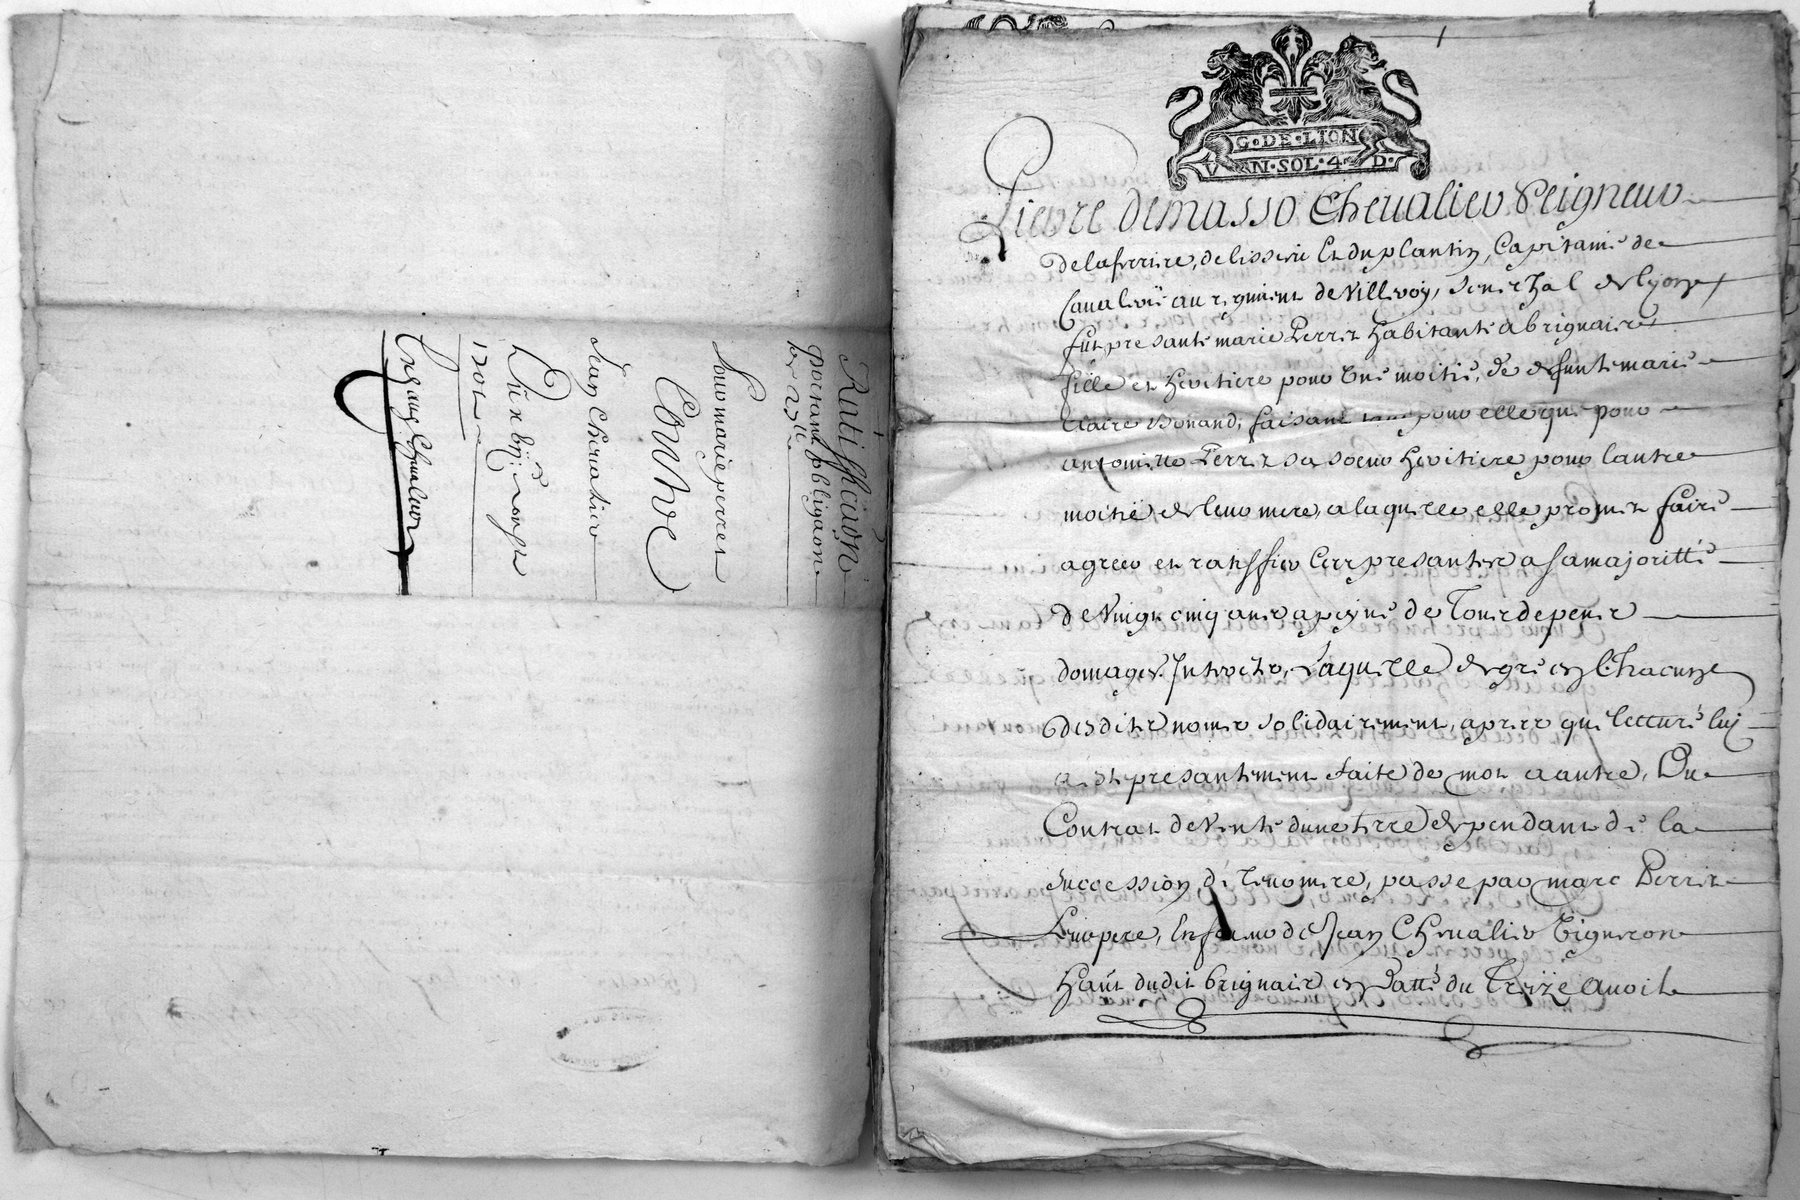 Ratiffica͠on
portant obbliga͠on
de 27 ll
Pour marie perret
Contre
Jean Chevalier
Du xbij
1701
Expaux Chevalier
G·DE·LION
V AN·SOL·4 D·
Pierre demasso Chevalier Seigneur
de la ferriere, de lissieu Et du plantin, Capitaine de
Cavalerie au regiment de Villeroy, senechal de lyon
fut presante marie Perret habitante a brignais
fille et heritiere pour une moitié, de defunte marie
Claire Bonand, faisant tant pour elle que pour
antoinette Perret sa soeur heritiere pour lautre
moitié de leur mere, a laquelle elle promet faire
agreer et ratiffier Ces presantes a sa majoritté
de Vingt cinq ans a peyne de Tous depens
domages Interets, Laquelle de gre en Chacung
desdits noms solidairement, apres que lecture luy
a est presantement faite de mot a autre, Du
Contrat de Vente dune terre dependant de la
succession de leur mere, passe par marc Perret
Leur pere, En faveur de Jean Chevalier Vigneron
hant dudit brignais en Datte du Treize avoit